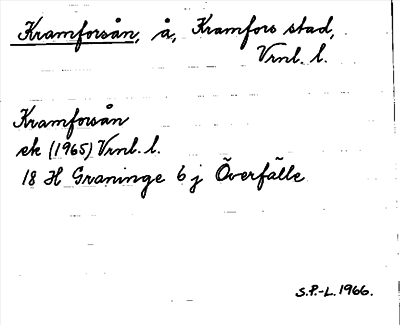 Kramforsån, å, Kramfors stad,
Vrnl. l.
Kramforsån
ek (1965) Vrnl. l.
18 H Graninge 6 j Överfälle
S.P.-L. 1966.